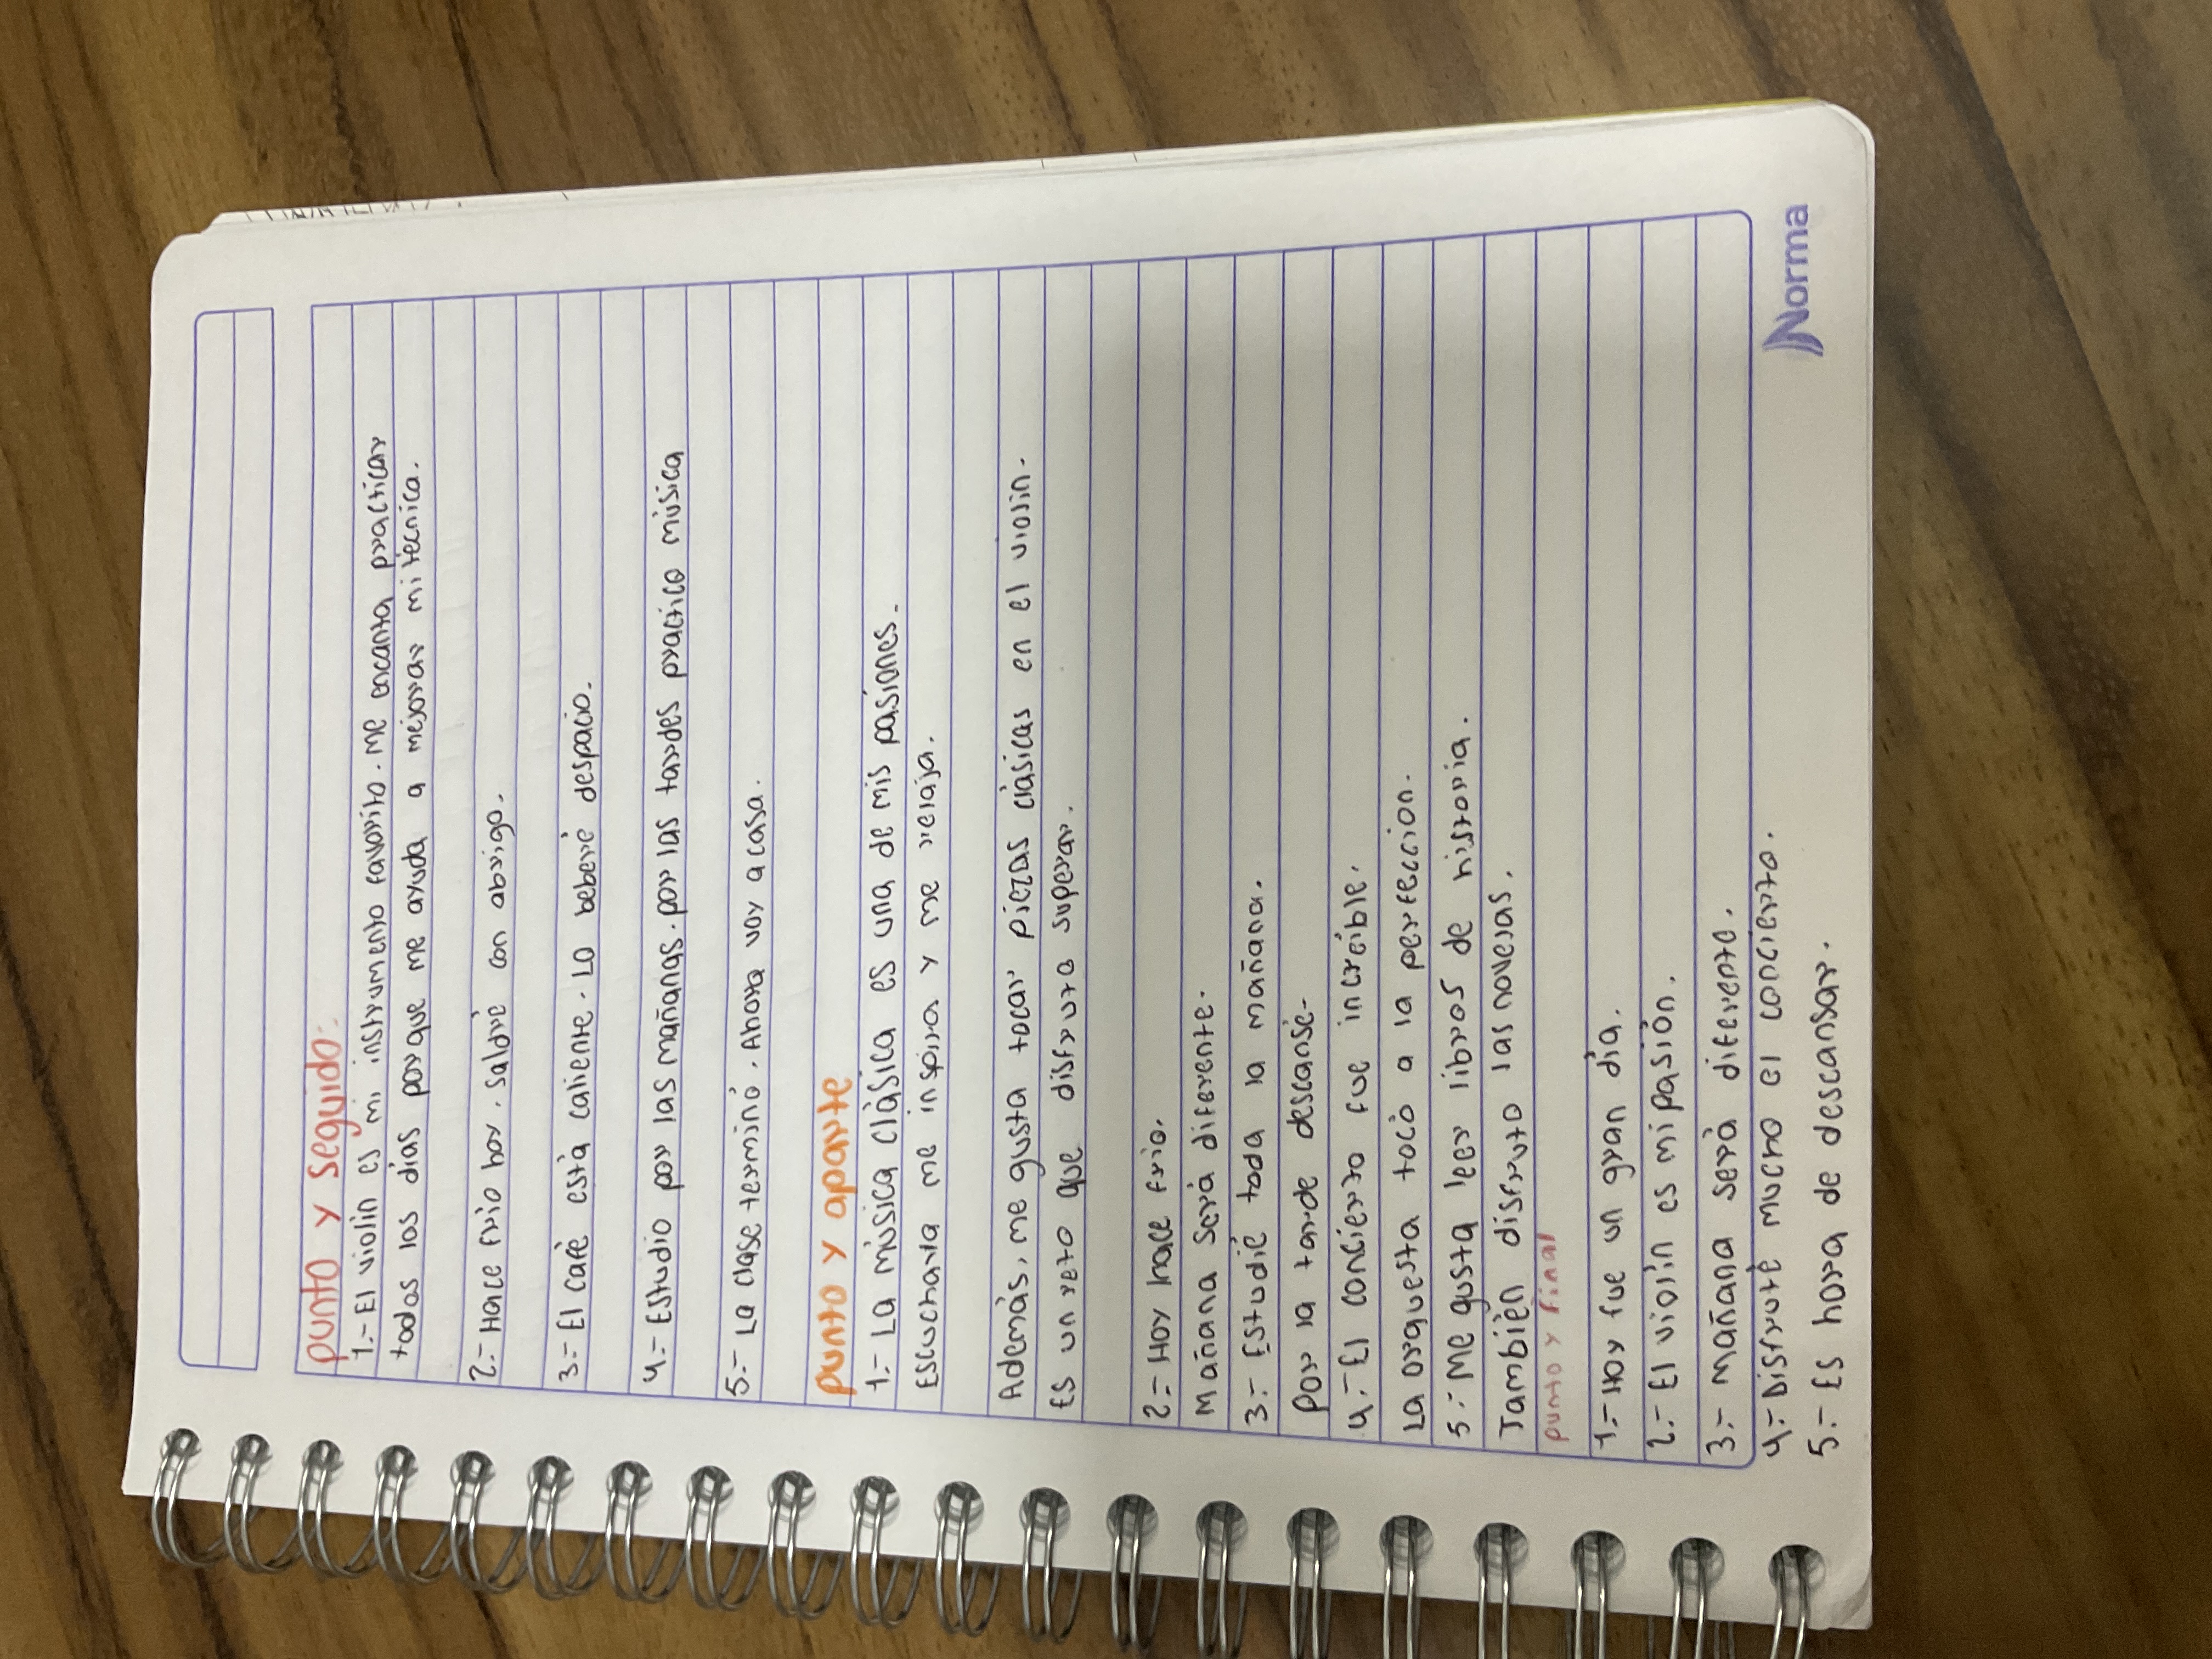 punto y seguido:
1.- El violin es mi instrumento favorito. Me encanta practicar
todos los días porque me ayuda a mejorar mi tecnica.
2.- Hace frio hoy. Saldré con abrigo.
3.- El café está caliente. Lo beberé despacio.
4.- Estudio por las mañanas. por las tardes practico música
5.- La clase terminó. Ahora voy a casa.
punto y aparte
1.- La música clásica es una de mis pasiones.
Escucharla me inspira y me relaja.
Además, me gusta tocar piezas clásicas en el violin.
Es un reto que disfruto superar.
2.- Hoy hace frio.
Mañana será diferente.
3.- Estudié toda la mañana.
Por la tarde descansé.
4.- El concierto fue increíble.
La orquesta tocó a la perfeccion.
5.- Me gusta leer libros de historia.
También disfruto las novelas.
punto y final
1.- Hoy fue un gran día.
2.- El violín es mi pasión.
3.- mañana será diferente.
4.- Disfruté mucho el concierto.
5.- Es hora de descansar.
Norma